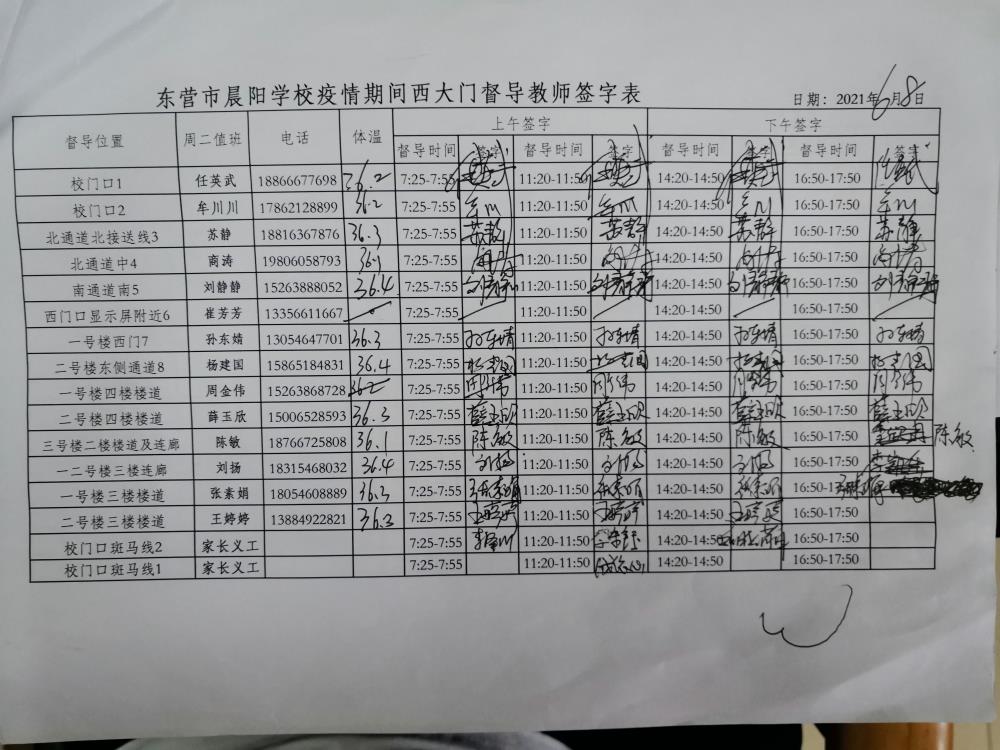 东营市晨阳学校疫情期间西大门督导教师签字表
日期：2021年6月8日
督导位置 周二值班 电话 体温 上午签字 下午签字
督导时间 签字 督导时间 签字 督导时间 签字 督导时间 签字
校门口1 任英武 18866677698 36.2 7:25-7:55 11:20-11:50 14:20-14:50 16:50-17:50
校门口2 牟川川 17862128899 36.2 7:25-7:55 牟川 11:20-11:50 牟川 14:20-14:50 牟川 16:50-17:50 牟川
北通道北接送线3 苏静 18816367876 36.3 7:25-7:55 苏静 11:20-11:50 苏静 14:20-14:50 苏静 16:50-17:50 苏静
北通道中4 商涛 19806058793 36.1 7:25-7:55 商涛 11:20-11:50 商涛 14:20-14:50 商涛 16:50-17:50 商涛
南通道南5 刘静静 15263888052 36.4 7:25-7:55 刘静静 11:20-11:50 刘静静 14:20-14:50 刘静静 16:50-17:50 刘静静
西门口显示屏附近6 崔芳芳 13356611667 7:25-7:55 11:20-11:50 14:20-14:50 16:50-17:50
一号楼西门7 孙东婧 13054647701 36.3 7:25-7:55 孙东婧 11:20-11:50 孙东婧 14:20-14:50 孙东婧 16:50-17:50 孙东婧
二号楼东侧通道8 杨建国 15865184831 36.4 7:25-7:55 杨建国 11:20-11:50 杨建国 14:20-14:50 杨建国 16:50-17:50 杨建国
一号楼四楼楼道 周金伟 15263868728 36.2 7:25-7:55 周金伟 11:20-11:50 周金伟 14:20-14:50 周金伟 16:50-17:50 周金伟
二号楼四楼楼道 薛玉欣 15006528593 36.3 7:25-7:55 薛玉欣 11:20-11:50 薛玉欣 14:20-14:50 薛玉欣 16:50-17:50 薛玉欣
三号楼二楼楼道及连廊 陈敏 18766725808 36.1 7:25-7:55 陈敏 11:20-11:50 陈敏 14:20-14:50 陈敏 16:50-17:50 陈敏
一二号楼三楼连廊 刘扬 18315468032 36.4 7:25-7:55 刘扬 11:20-11:50 刘扬 14:20-14:50 刘扬 16:50-17:50
一号楼三楼楼道 张素娟 18054608889 36.3 7:25-7:55 张素娟 11:20-11:50 张素娟 14:20-14:50 张素娟 16:50-17:50
二号楼三楼楼道 王婷婷 13884922821 36.3 7:25-7:55 王婷婷 11:20-11:50 王婷婷 14:20-14:50 王婷婷 16:50-17:50
校门口斑马线2 家长义工 7:25-7:55 11:20-11:50 14:20-14:50 16:50-17:50
校门口斑马线1 家长义工 7:25-7:55 11:20-11:50 14:20-14:50 16:50-17:50